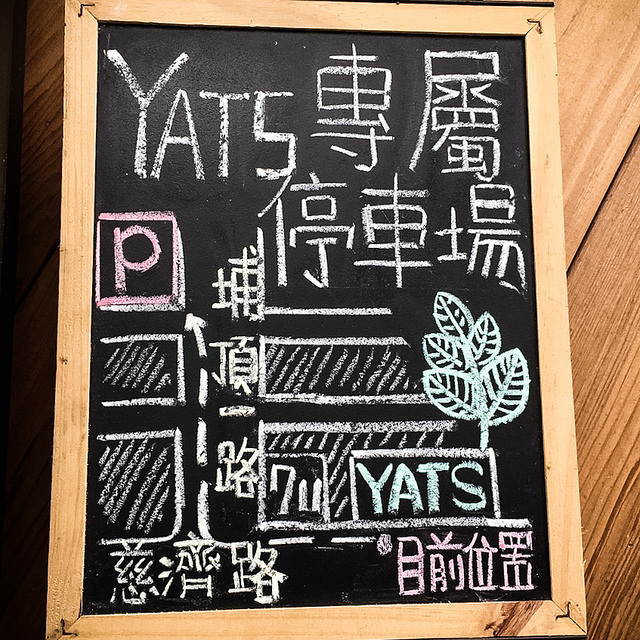 YATS 專屬
停車場
P
埔頂一路
711
YATS
慈濟路
目前位置